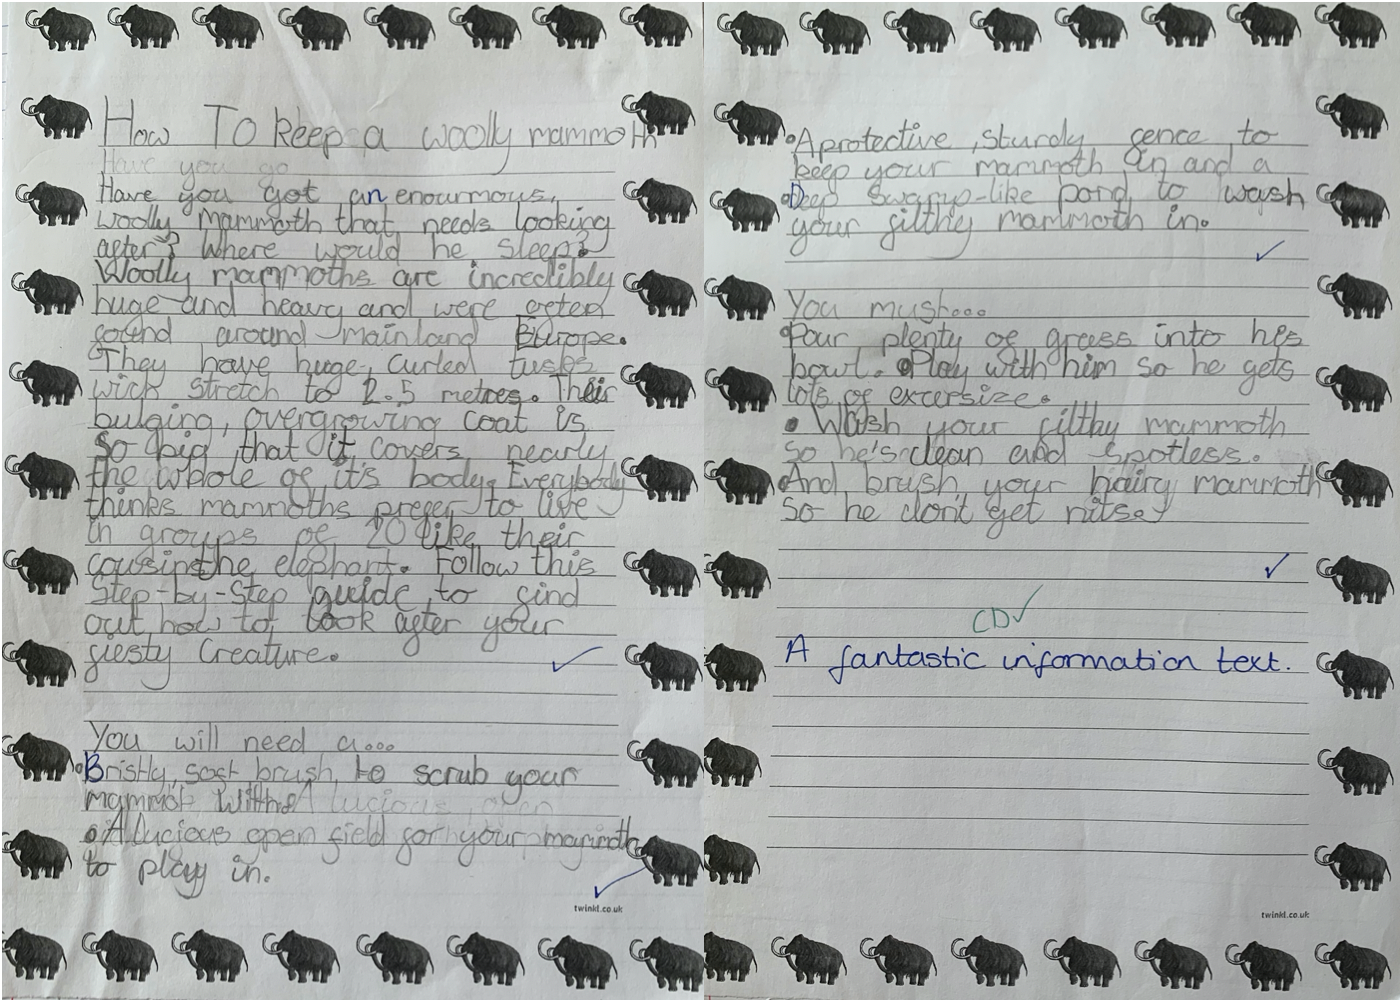 How To keep a woolly mammoth
Have you go
Have you got an enourmous,
woolly mammoth that needs looking
after? Where would he sleep?
Woolly mammoths are incredibly
huge and heavy and were often
found around mainland Europe.
They have huge, curled tusks
wich stretch to 2.5 metres. Their
bulging, overgrowing coat is
so big that it covers nearly
the whole of it's body. Everybody
thinks mammoths prefer to live
in groups of 20 like their
cousin the elephant. Follow this
step-by-step guide to find
out how to look after your
fiesty creature.
You will need a...
• Bristly, soft brush to scrub your
mammot with
lucious open
• A lucious open field for your mammoth
to play in.
twinkl.co.uk
• A protective, sturdy fence to
keep your mammoth in and a
• Deep swamp-like pond to wash
your filthy mammoth in.
You must...
• Pour plenty of grass into his
bowl. • Play with him so he gets
lots of excersize.
• Wash your filthy mammoth
so he's clean and spotless.
• And brush your hairy mammoth
so he dont get nits.
CD
A fantastic information text.
twinkl.co.uk